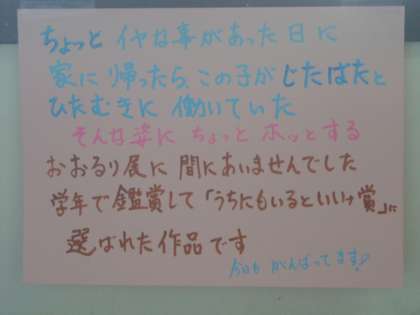 ちょっと イヤな事があった日に
家に帰ったら、この子が じたばたと
ひたむきに 働いていた
そんな姿に ちょっと ホッとする
おおるり展に 間にあいませんでした
学年で鑑賞して「うちにもいるといいで賞」に
選ばれた作品です
今日も がんばってます♪